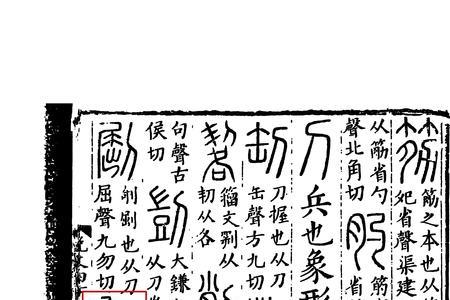 筋之本也从
省聲渠建
从筋省勺
聲北角切
筋
省
刀兵也象形
刀握也从刀
缶聲方九切
籒文
从各
句聲古
侯切
剴大鎌也
从刀
剞劂也从刀
屈聲九勿切